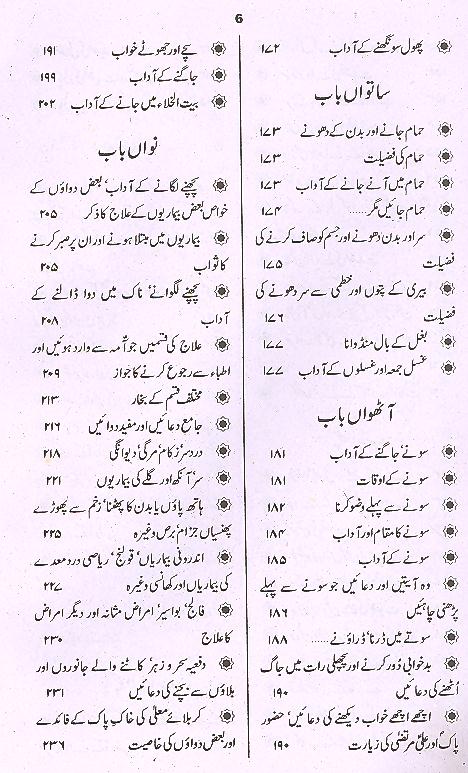 6
پھول سونگھنے کے آداب ۱۷۲
ساتواں باب
حمام جانے اور بدن کے دھونے ۱۷۳
حمام کی فضیلت ۱۷۳
حمام میں آنے جانے کے آداب ۱۷۳
حمام جائیں مگر...... ۱۷۴
سر اور بدن دھونے اور جسم کو صاف کرنے کی
فضیلت ۱۷۵
بیری کے پتوں اور خطمی سے سر دھونے کی
فضیلت ۱۷۶
بغل کے بال منڈوانا ۱۷۷
غسل جمعہ اور غسلوں کے آداب ۱۷۷
آٹھواں باب
سونے' جاگنے کے آداب ۱۸۱
سونے کے اوقات ۱۸۱
سونے سے پہلے وضو کرنا ۱۸۲
سونے کا مقام اور آداب ۱۸۴
سونے کے آداب ۱۸۵
وہ آیتیں اور دعائیں جو سونے سے پہلے
پڑھنی چاہئیں ۱۸۶
سوتے میں ڈرنا' ڈراؤنے...... ۱۸۸
بدخوابی دُور کرنے اور پچھلی رات میں جاگ
اُٹھنے کی دعائیں ۱۹۰
اچھے اچھے خواب دیکھنے کی دعائیں' حضور
پاکؐ اور علی مرتضیٰؑ کی زیارت ۱۹۰
سچے اور جھوٹے خواب ۱۹۱
جاگنے کے آداب ۱۹۹
بیت الخلاء میں جانے کے آداب ۲۰۲
نواں باب
پچھنے لگانے کے آداب' بعض دواؤں کے
خواص بعض بیماریوں کے علاج کا ذکر ۲۰۵
بیماریوں میں مبتلا ہونے اور ان پر صبر کرنے
کا ثواب ۲۰۵
پچھنے لگوانے' ناک میں دوا ڈالنے کے
آداب ۲۰۸
علاج کی قسمیں جو آئمہ سے وارد ہوئیں اور
اطباء سے رجوع کرنے کا جواز ۲۰۹
مختلف قسم کے بخار ۲۱۳
جامع دعائیں اور مفید دوائیں ۲۱۶
دردِ سر' زکام' مرگی' دیوانگی ۲۱۸
سر' آنکھ اور گلے کی بیماریوں ۲۲۱
ہاتھ پاؤں یا بدن کا پھٹنا' زخم سے پھوڑے
پھنسیاں جزام' برص وغیرہ ۲۲۵
اندرونی بیماریاں' قولنج' ریاحی درد معدے
کی بیماریاں اور کھانسی وغیرہ ۲۲۷
فالج' بواسیر' امراض مثانہ اور دیگر امراض
کا علاج ۲۳۰
دفعیہ سحر و زہر' کاٹنے والے جانوروں اور
بلاؤں سے بچنے کی دعائیں ۲۳۱
کربلائے معلیٰ کی خاکِ پاک کے فائدے
اور بعض دواؤں کی خاصیت ۲۳۶